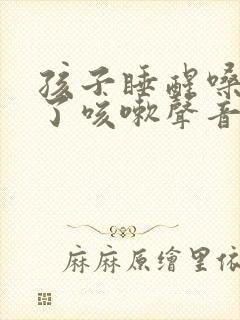 孩子睡醒嗓
了咳嗽聲音
麻麻原繪里依